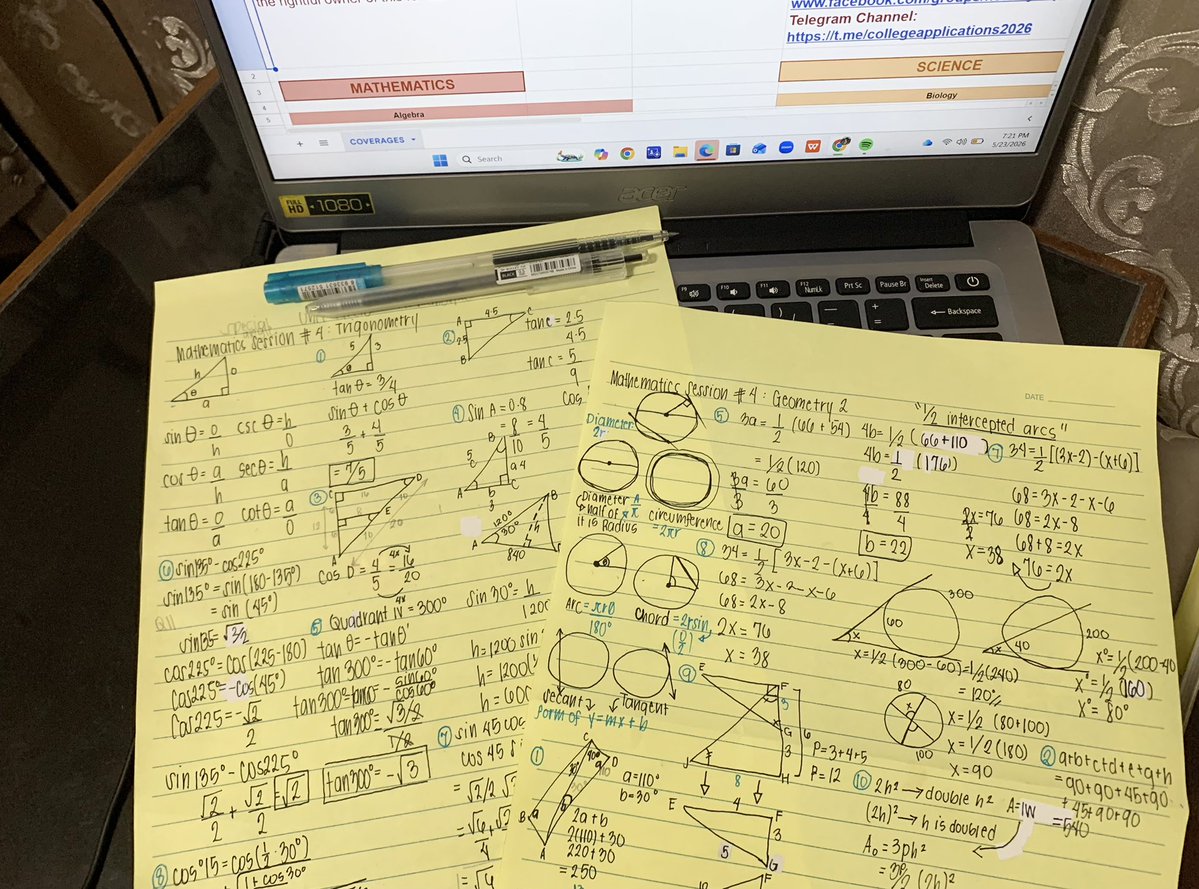 the rightful owner of this
www.facebook.com/groups
Telegram Channel:
https://t.me/collegeapplications2026
2
3
4
5
MATHEMATICS
Algebra
SCIENCE
Biology
COVERAGES
Search
7:21 PM
5/23/2026
FULL HD 1080
acer
F9
F10
F11
F12 NumLk
Prt Sc
Pause Br
Insert Delete
Backspace
BLACK
Mathematics Session #4: Trigonometry
h
o
θ
a
sin θ = o/h csc θ = h/o
cos θ = a/h sec θ = h/a
tan θ = o/a cot θ = a/o
① 5 3
θ
tan θ = 3/4
sin θ + cos θ
3/5 + 4/5
= 7/5
② A 4.5 C
2.5
B
tan C = 2.5/4.5
tan C = 5/9
③ C D
E
A
20
cos D = 4/5 = 16/20
④ sin A = 0.8
= 8/10 = 4/5
B
5
c
a 4
A b C
3
cos
B
1200
A 30°
840
sin 30° = h/1200
h = 1200 sin
h = 1200(
h = 600
⑤ Quadrant IV = 300°
tan θ = -tan θ'
tan 300° = -tan 60°
tan 300° = tan 60° - sin 60°/cos 60°
tan 300° = √3/2
1/2
tan 300° = -√3
⑥ sin 135° - cos 225°
sin 135° = sin (180-135°)
= sin (45°)
QII
sin 135 = √3/2
cos 225° = cos (225-180)
cos 225° = -cos (45°)
cos 225 = -√2/2
sin 135° - cos 225°
√2/2 + √2/2 = √2
⑦ sin 45 cos
cos 45 s
= √2/2 √3
= √6 + √2
4
⑧ cos° 15 = cos (1/2 · 30°)
1 + cos 30°
= √6
Mathematics Session #4: Geometry 2
DATE
"1/2 intercepted arcs"
Diameter
2r
Diameter
half of
It is Radius
circumference
= 2πr
Arc = πrθ
180°
Chord = 2r sin
(θ/2)
Secant
Tangent
form of y = mx + b
⑤ 3a = 1/2 (66 + 54)
= 1/2 (120)
3a = 60
3 3
a = 20
4b = 1/2 (66 + 110
4b = 1/2 (176)
4b = 88
4 4
b = 22
⑦ 34 = 1/2 [(3x-2) - (x+6)]
68 = 3x - 2 - x - 6
68 = 2x - 8
68 + 8 = 2x
76 = 2x
2x = 76
2
x = 38
⑧ 34 = 1/2 [3x - 2 - (x+6)]
68 = 3x - 2 - x - 6
68 = 2x - 8
2x = 76
x = 38
300
60
x
x = 1/2 (300 - 60) = 1/2 (240)
= 120°
200
40
x
x° = 1/2 (200 - 40
x° = 1/2 (160)
x° = 80°
80
x
100
x = 1/2 (80 + 100)
x = 1/2 (180)
x = 90
⑨ E F
x
3
G 6
3
J 8 H
P = 3 + 4 + 5
P = 12
E 4 F
3
5 G
F
① C
D
B
A
a = 110°
b = 30°
2a + b
2(110) + 30
220 + 30
= 250
⑩ 2h² → double h²
(2h)² → h is doubled
A = lw
A₀ = 3ph²
(2h)²
② a+b+c+d+e+g+h
= 90+90+45+90
+45+90+90
= 540